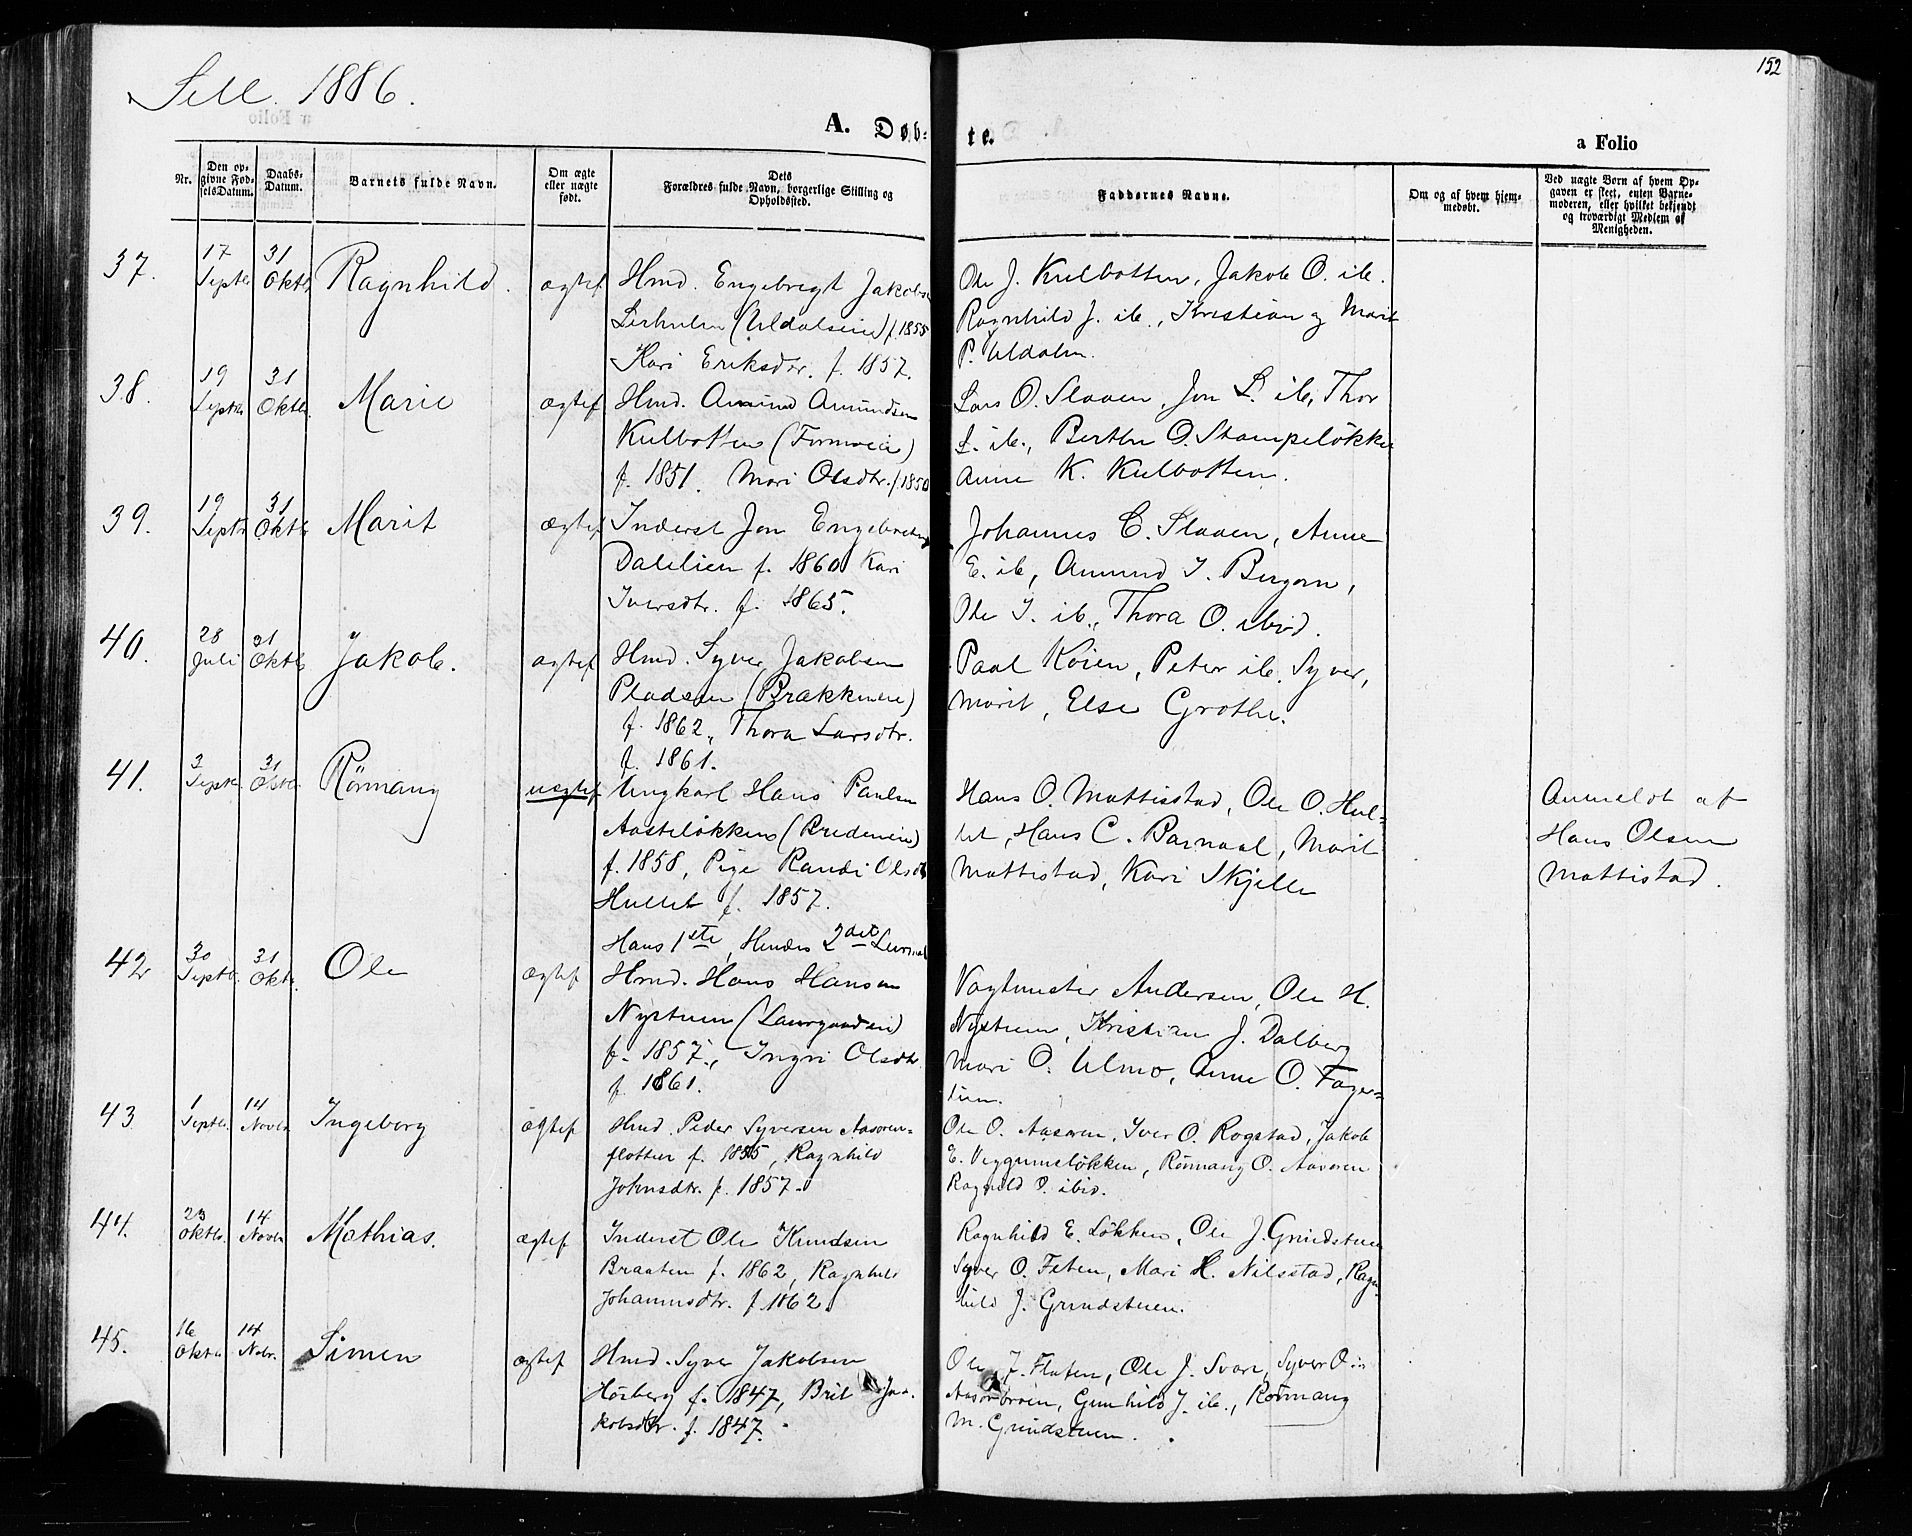 Sell. 1886.
152
A. Døb-
te.
a Folio
Nr.
Den op-
givne Fød-
selsDatum.
Daabs-
Datum.
Barnets fulde Navn.
Om ægte
eller uægte
født.
Dets
Forældres fulde Navn, borgerlige Stilling og
Opholdssted.
Faddernes Navne.
Om og af hvem hjem-
medøbt.
Ved uægte Børn af hvem Op-
gaven er skeet, enten Barne-
moderen, eller hvilket bekjendt
og troværdigt Medlem af
Menigheden.
37. 17 Septb. 31 Oktb. Ragnhild. ægtef
Hmd. Engebregt Jakobs
(Uldalseie) f. 1855
Kari Eriksdtr. f. 1857.
Ole J. Kulbotten, Jakob O. ib.
Ragnhild J. ib., Kristian og Marit
P. Uldalen.
38. 19 Septb. 31 Oktb. Marie ægtef
Hmd. Amund Amundsen
Kulbotten (Formoeie)
f. 1851. Mari Olsdtr. f. 1850
Lars O. Slaaen, Jon L. ib, Thor
L. ib., Berthe O. Stampeløkken
Anne K. Kulbotten.
39. 19 Septb. 31 Oktb. Marit ægtef
Inderst Jon Engebretsen
Dalelien f. 1860 Kari
Iversdtr. f. 1865.
Johannes E. Slaaen, Anne
E. ib, Amund I. Bergom,
Ole I. ib., Thora O. ibid.
40. 28 Juli 31 Oktb. Jakob. ægtef
Hmd. Syver Jakobsen
Pladsen (Brækkeneie)
f. 1862, Thora Larsdtr.
f. 1861.
Paal Koien, Peter ib. Syver,
Marit, Else Grothe.
41. 3 Septb. 31 Oktb. Rønnaug uægtef
Ungkarl Hans Paulsen
Aasteløkken (Bredeneie)
f. 1858, Pige Randi Olsdt
Hullet f. 1857.
Hans 1ste, Hendes 2det Leiermaal
Hans O. Mattisstad, Ole O. Hul-
let, Hans C. Barnaal, Marit
Mattistad, Kari Skjelle
Anmeldt af
Hans Olsen
Mattistad.
42 30 Septb. 31 Oktb. Ole ægtef
Hmd. Hans Hansen
Nystuen (Laurgaardseie)
f. 1857., Ingri Olsdtr.
f. 1861.
Vagtmester Andersen, Ole H.
Nystuen, Kristian J. Dalberg
Mari O. Ulmo, Anne O. Fager-
lien.
43 1 Septb. 14 Novbr Ingeborg ægtef
Hmd. Peder Syversen Aasoren-
flotten f. 1855, Ragnhild
Johnsdtr. f. 1857.
Ole O. Aasoren, Iver O. Rogstad, Jakob
E. Veggumsløkken, Rønnaug O. Aasoren
Ragnild O. ibid.
44. 23 Oktb. 14 Novbr Mathias. ægtef
Inderst Ole Knudsen
Braaten f. 1862, Ragnhild
Johannesdtr. f. 1862.
Ragnhild E. Løkken, Ole J. Grindstuen
Syver O. Feten, Mari H. Nilsstad, Ragn
hild J. Grundstuen.
45. 16 Oktb 14 Nobr. Simen ægtef
Hmd. Syver Jakobsen
Høiberg f. 1847, Brit Ja-
kobsdtr. f. 1847.
Ole J. Flaten, Ole J. Svare, Syver O.
Aasoroeen, Gunhild J. ib., Rønnaug
M. Grindstuen.